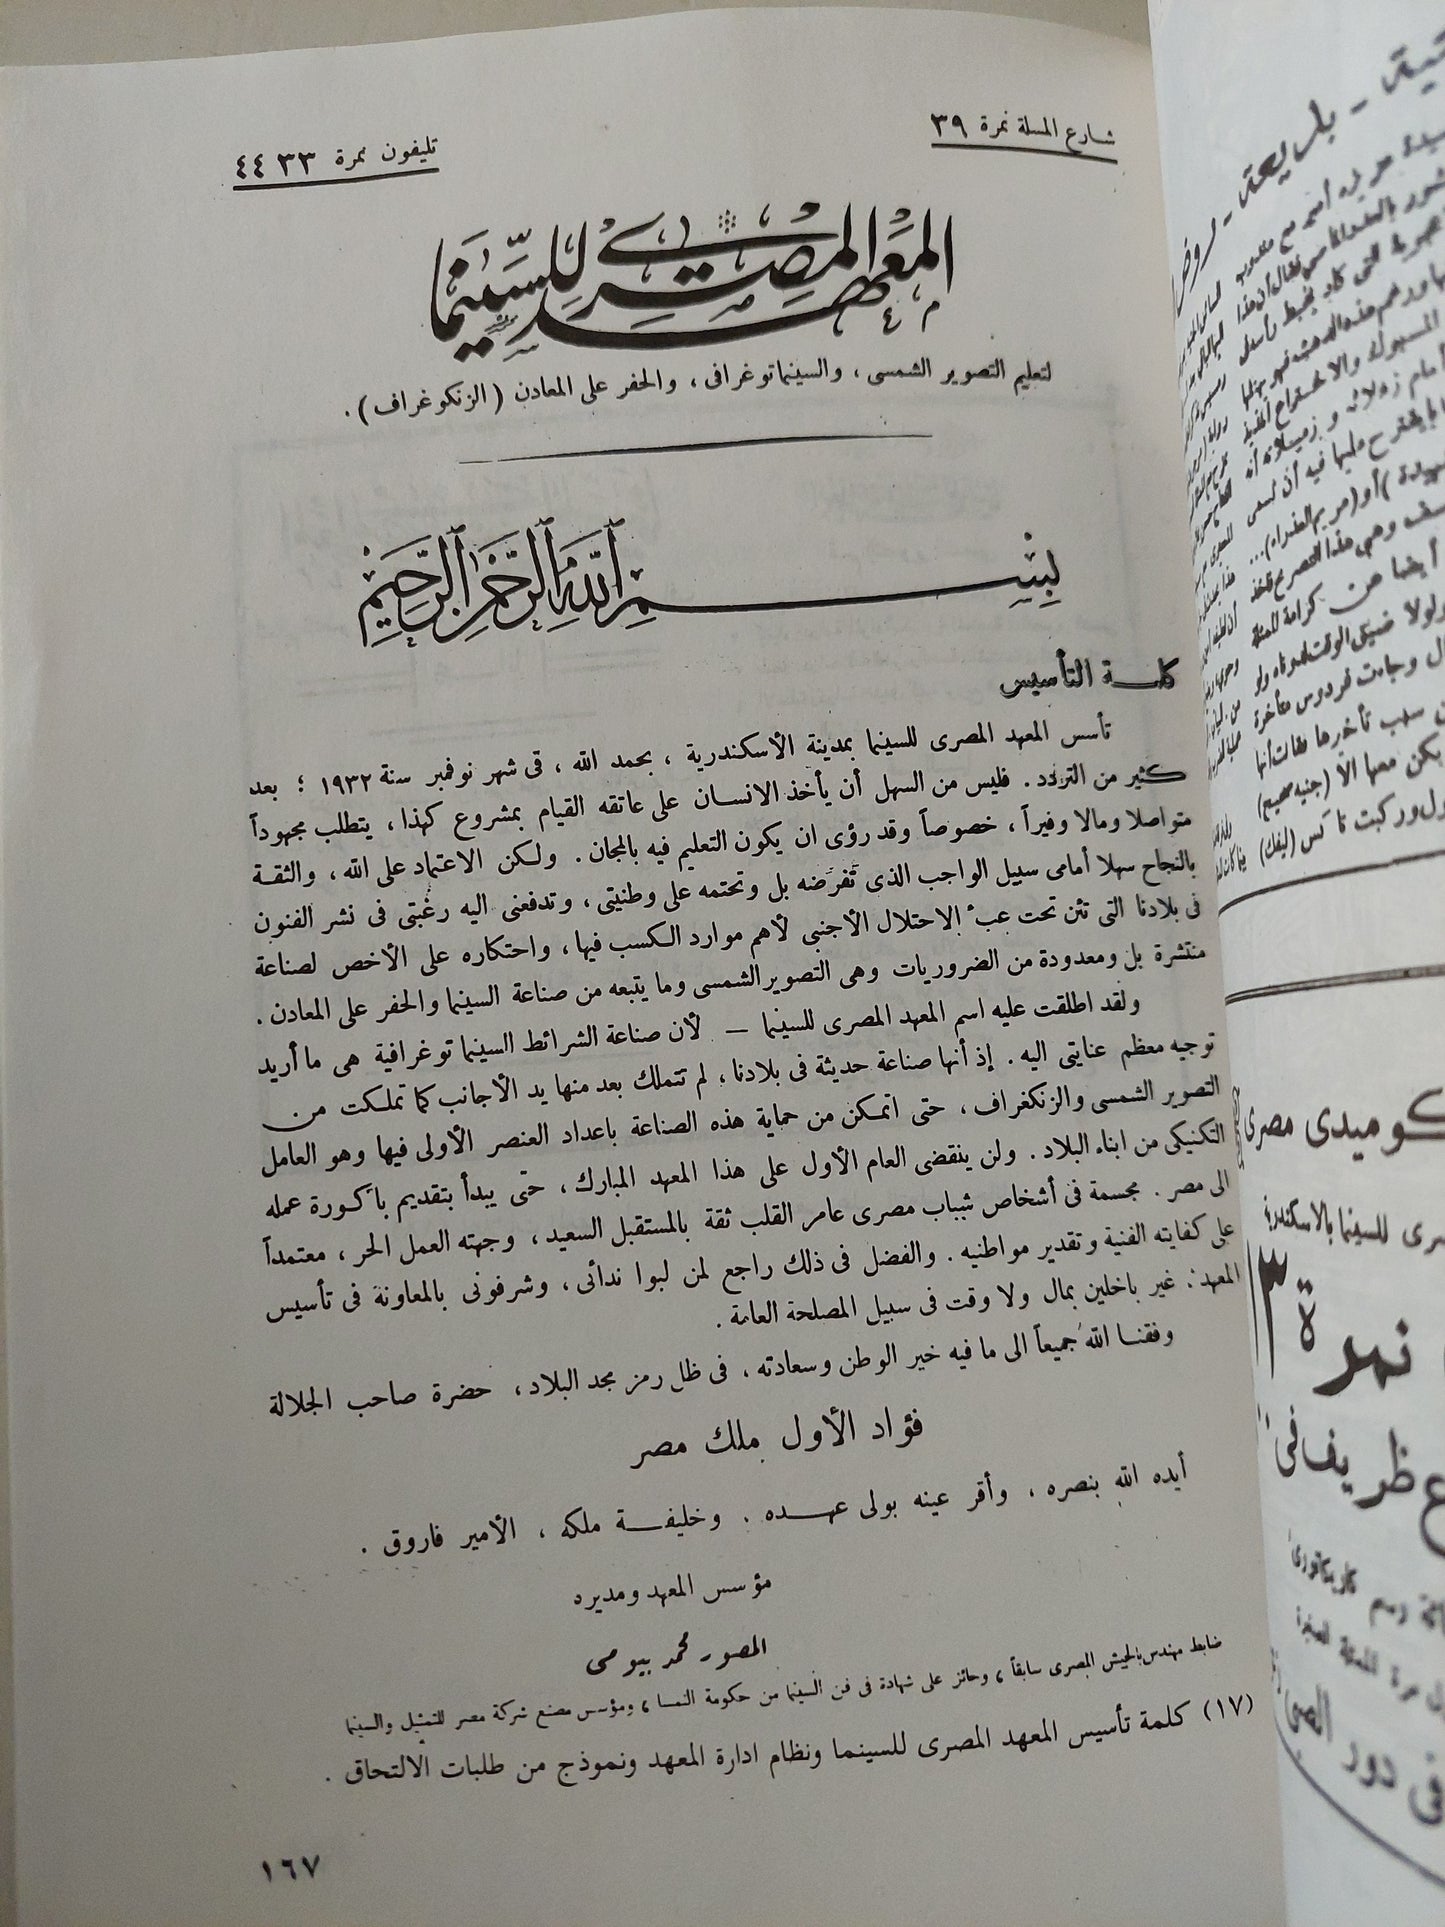 شارع المسلة نمرة ٣٩
تليفون نمرة ٣٣ ٤٤
المعهد المصرى للسينما
لتعليم التصوير الشمسى ، والسينماتوغرافى ، والحفر على المعادن ( الزنكوغراف ) .
بسم الله الرحمن الرحيم
كلمة التأسيس
تأسس المعهد المصرى للسينما بمدينة الأسكندرية ، بحمد الله ، فى شهر نوفمبر سنة ١٩٣٢ ؛ بعد
كثير من التردد . فليس من السهل أن يأخذ الانسان على عاتقه القيام بمشروع كهذا ، يتطلب مجهوداً
متواصلا ومالا وفيراً ، خصوصاً وقد رؤى ان يكون التعليم فيه بالمجان . ولكن الاعتماد على الله ، والثقة
بالنجاح سهلا أمامى سبيل الواجب الذى تفرضه بل وتحتمه على وطنيتى ، وتدفعنى اليه رغبتى فى نشر الفنون
فى بلادنا التى تئن تحت عبء الاحتلال الأجنبى لأهم موارد الكسب فيها ، واحتكاره على الأخص لصناعة
منتشرة بل ومعدودة من الضروريات وهى التصوير الشمسى وما يتبعه من صناعة السينما والحفر على المعادن .
ولقد اطلقت عليه اسم المعهد المصرى للسينما — لأن صناعة الشرائط السينماتوغرافية هى ما أريد
توجيه معظم عنايتى اليه . إذ أنها صناعة حديثة فى بلادنا ، لم تتملك بعد منها يد الأجانب كما تملكت من
التصوير الشمسى والزنكغراف ، حتى أتمكن من حماية هذه الصناعة باعداد العنصر الأولى فيها وهو العامل
التكنيكى من ابناء البلاد . ولن ينقضى العام الأول على هذا المعهد المبارك ، حتى يبدأ بتقديم باكورة عمله
الى مصر . مجسمة فى أشخاص شباب مصرى عامر القلب ثقة بالمستقبل السعيد ، وجهته العمل الحر ، معتمداً
على كفايته الفنية وتقدير مواطنيه . والفضل فى ذلك راجع لمن لبوا ندائى ، وشرفونى بالمعاونة فى تأسيس
المعهد : غير باخلين بمال ولا وقت فى سبيل المصلحة العامة .
وفقنا الله جميعاً الى ما فيه خير الوطن وسعادته ، فى ظل رمز مجد البلاد ، حضرة صاحب الجلالة
فؤاد الأول ملك مصر
أيده الله بنصره ، وأقر عينه بولى عهده . وخليفة ملكه ، الأمير فاروق .
مؤسس المعهد ومديره
المصور محمد بيومى
ضابط مهندس بالجيش المصرى سابقاً ، وحائز على شهادة فى فن السينما من حكومة النمسا ، ومؤسس مصنع شركة مصر للتمثيل والسينما
(١٧) كلمة تأسيس المعهد المصرى للسينما ونظام ادارة المعهد ونموذج من طلبات الالتحاق .
١٦٧
كوميدى مصرى
للسينما بالاسكندرية
نمرة ١٣
ظريف فى
كاريكاتورى
فى دور